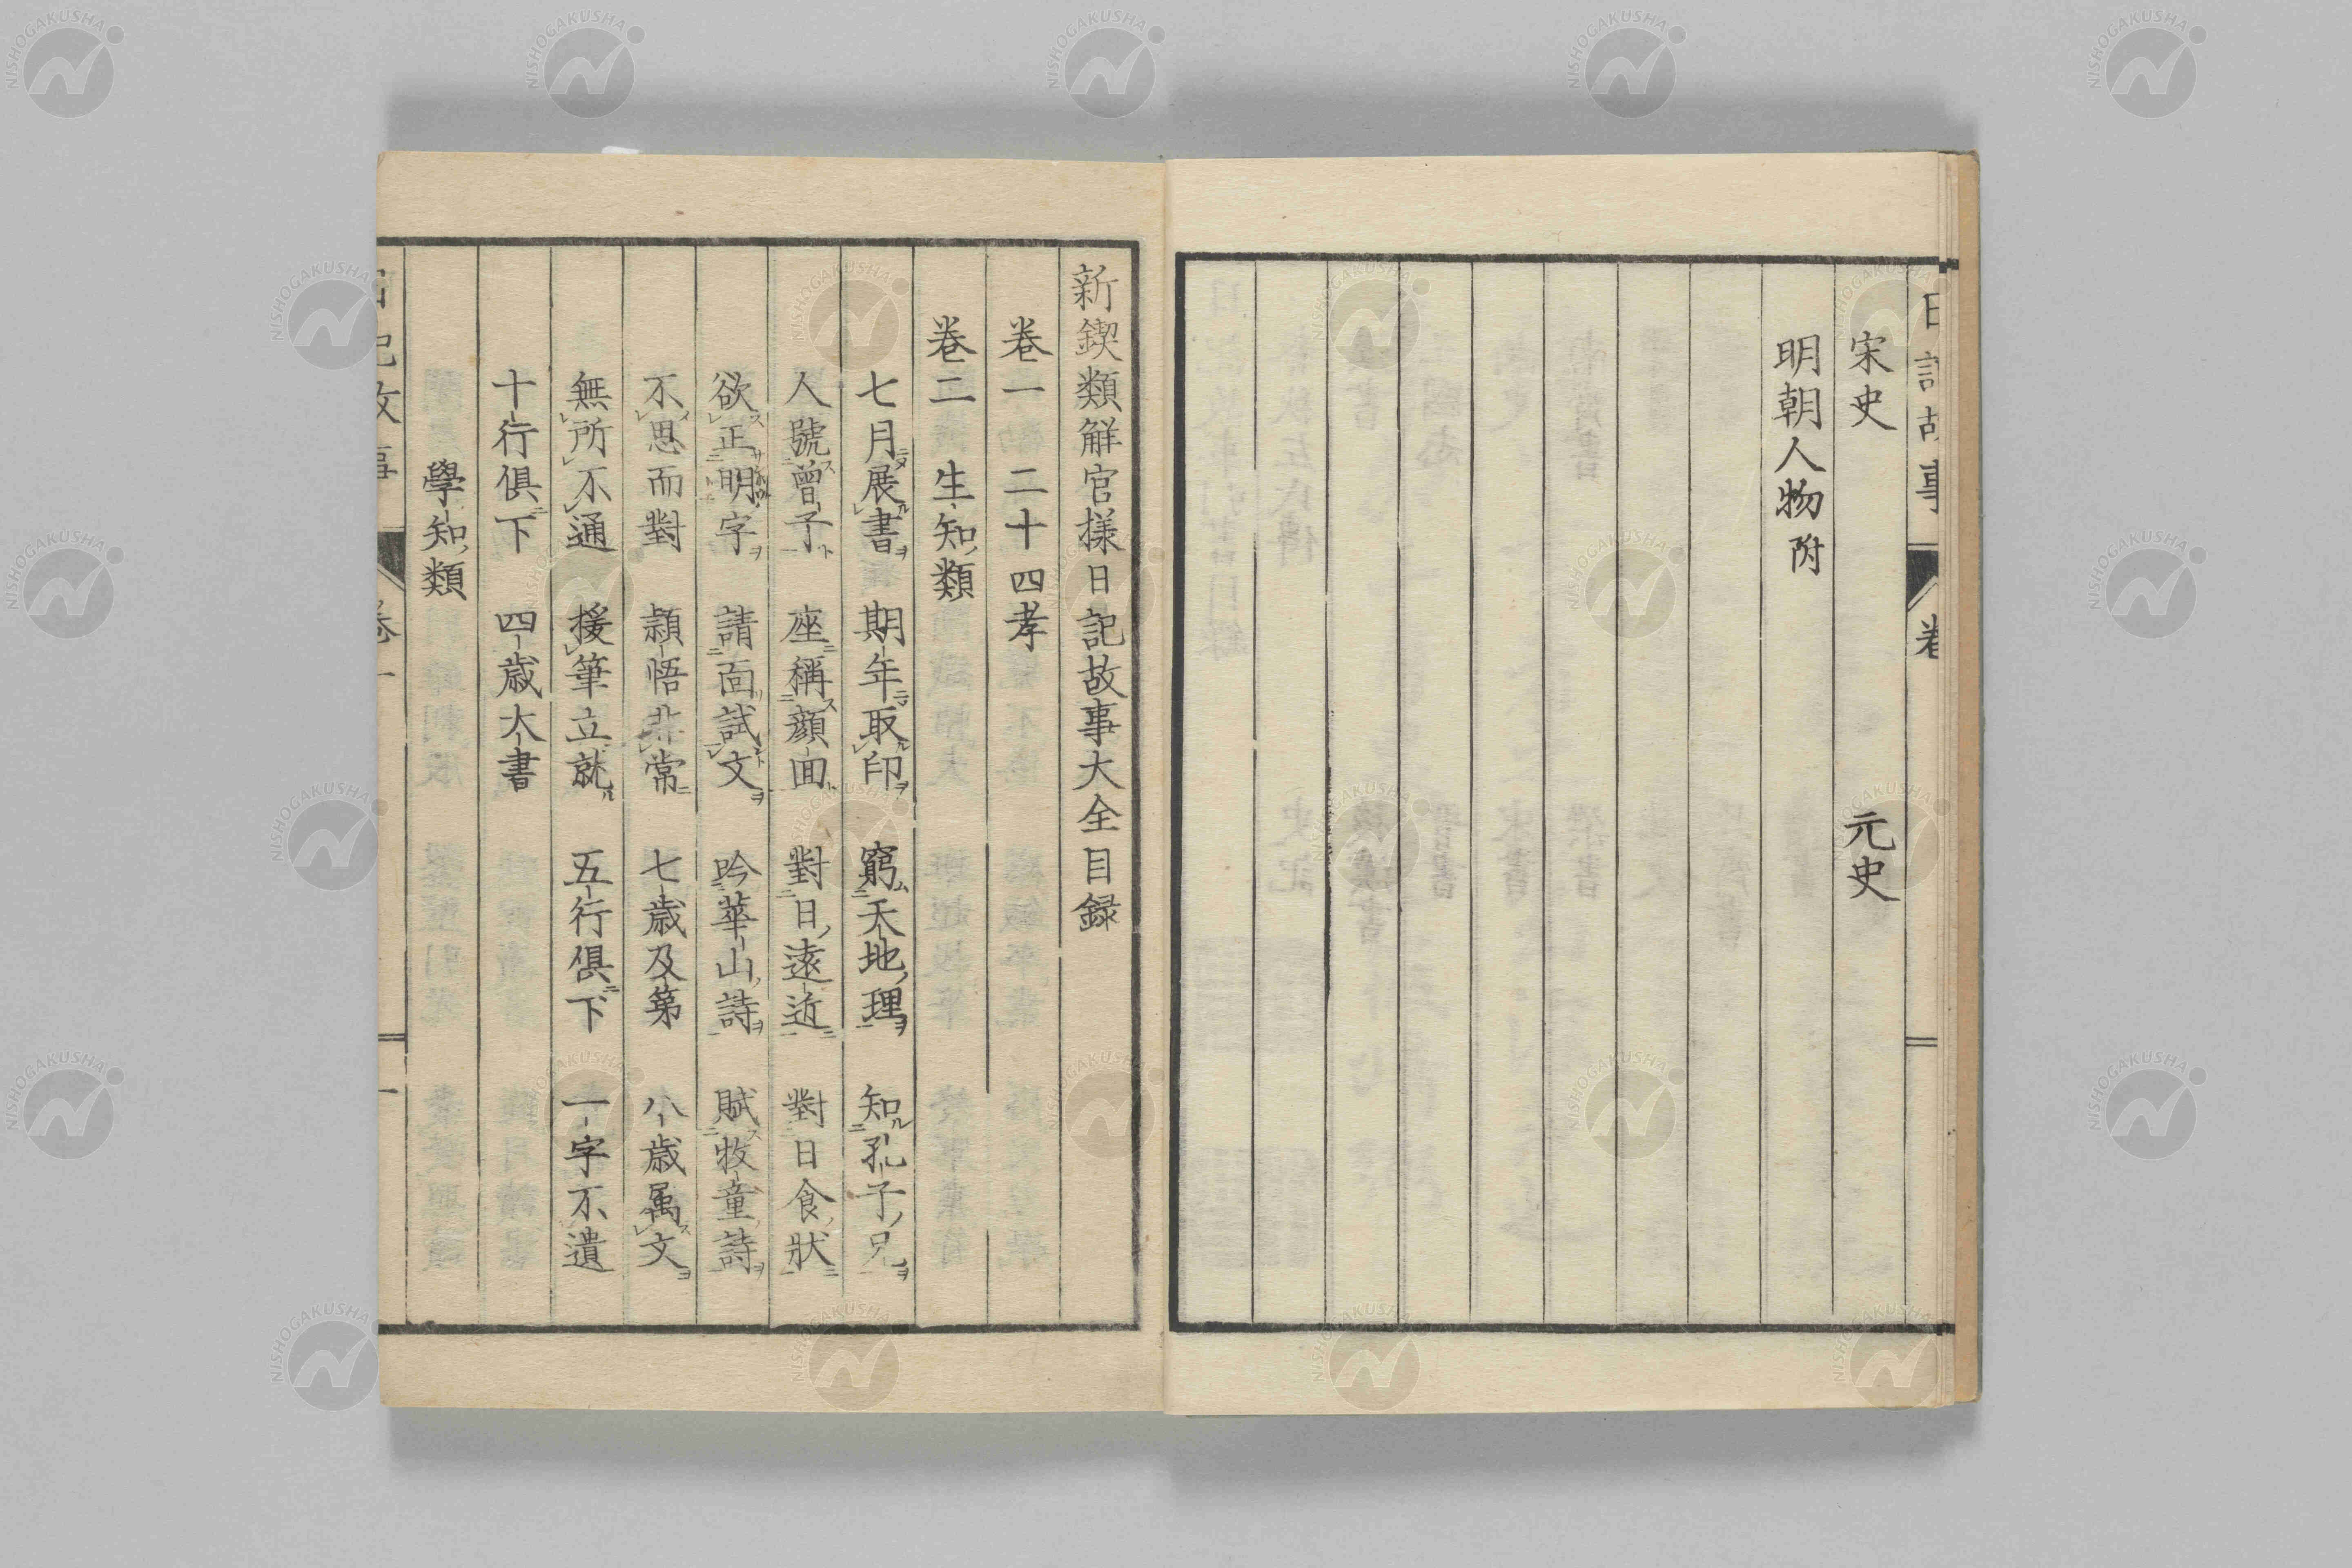 宋史　元史
明朝人物附
新鍥類觧官樣日記故事大全目録
卷一　二十四孝
卷二　生知類
七月展書　期年取印　窮天地理　知孔子兄
人號曾子　座稱顔回　對日遠近　對日食狀
欲正明字　請面試文　吟華山詩　賦牧童詩
不思而對　頴悟非常　七歳及第　八歳属文
無所不通　援筆立就　五行俱下　一字不遺
十行俱下　四歳大書
學知類
日記故事　卷一　一
NISHOGAKUSHA